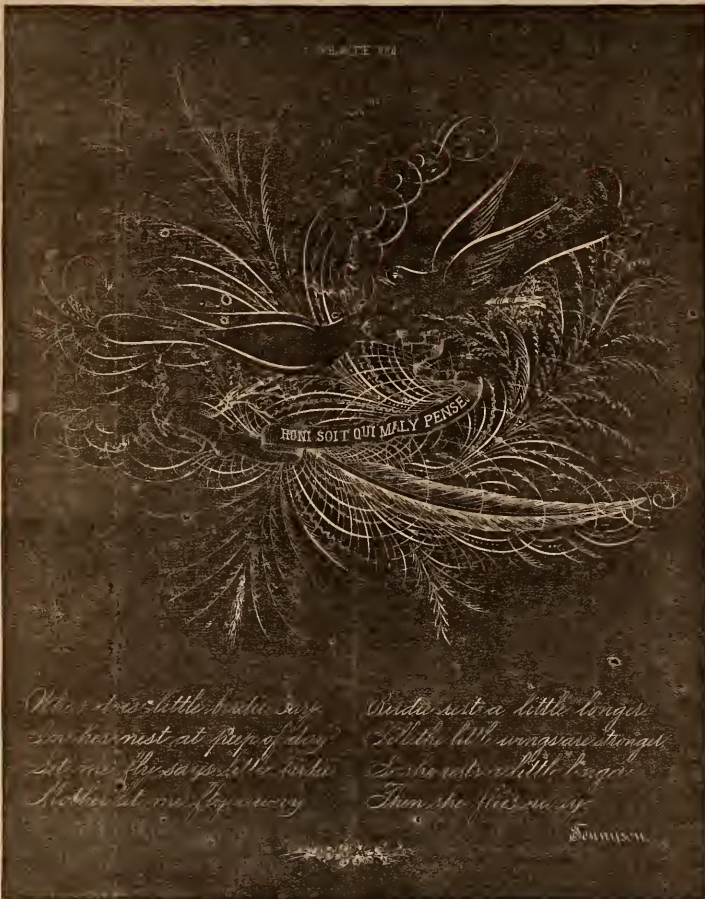 PLATE
HONI SOIT QUI MAL Y PENSE.
What does little birdie say
In her nest at peep of day
Let me fly says little birdie
Mother let me fly away
Birdie rest a little longer
Till the little wings are stronger
So she rests a little longer
Then she flies away.
Tennyson.